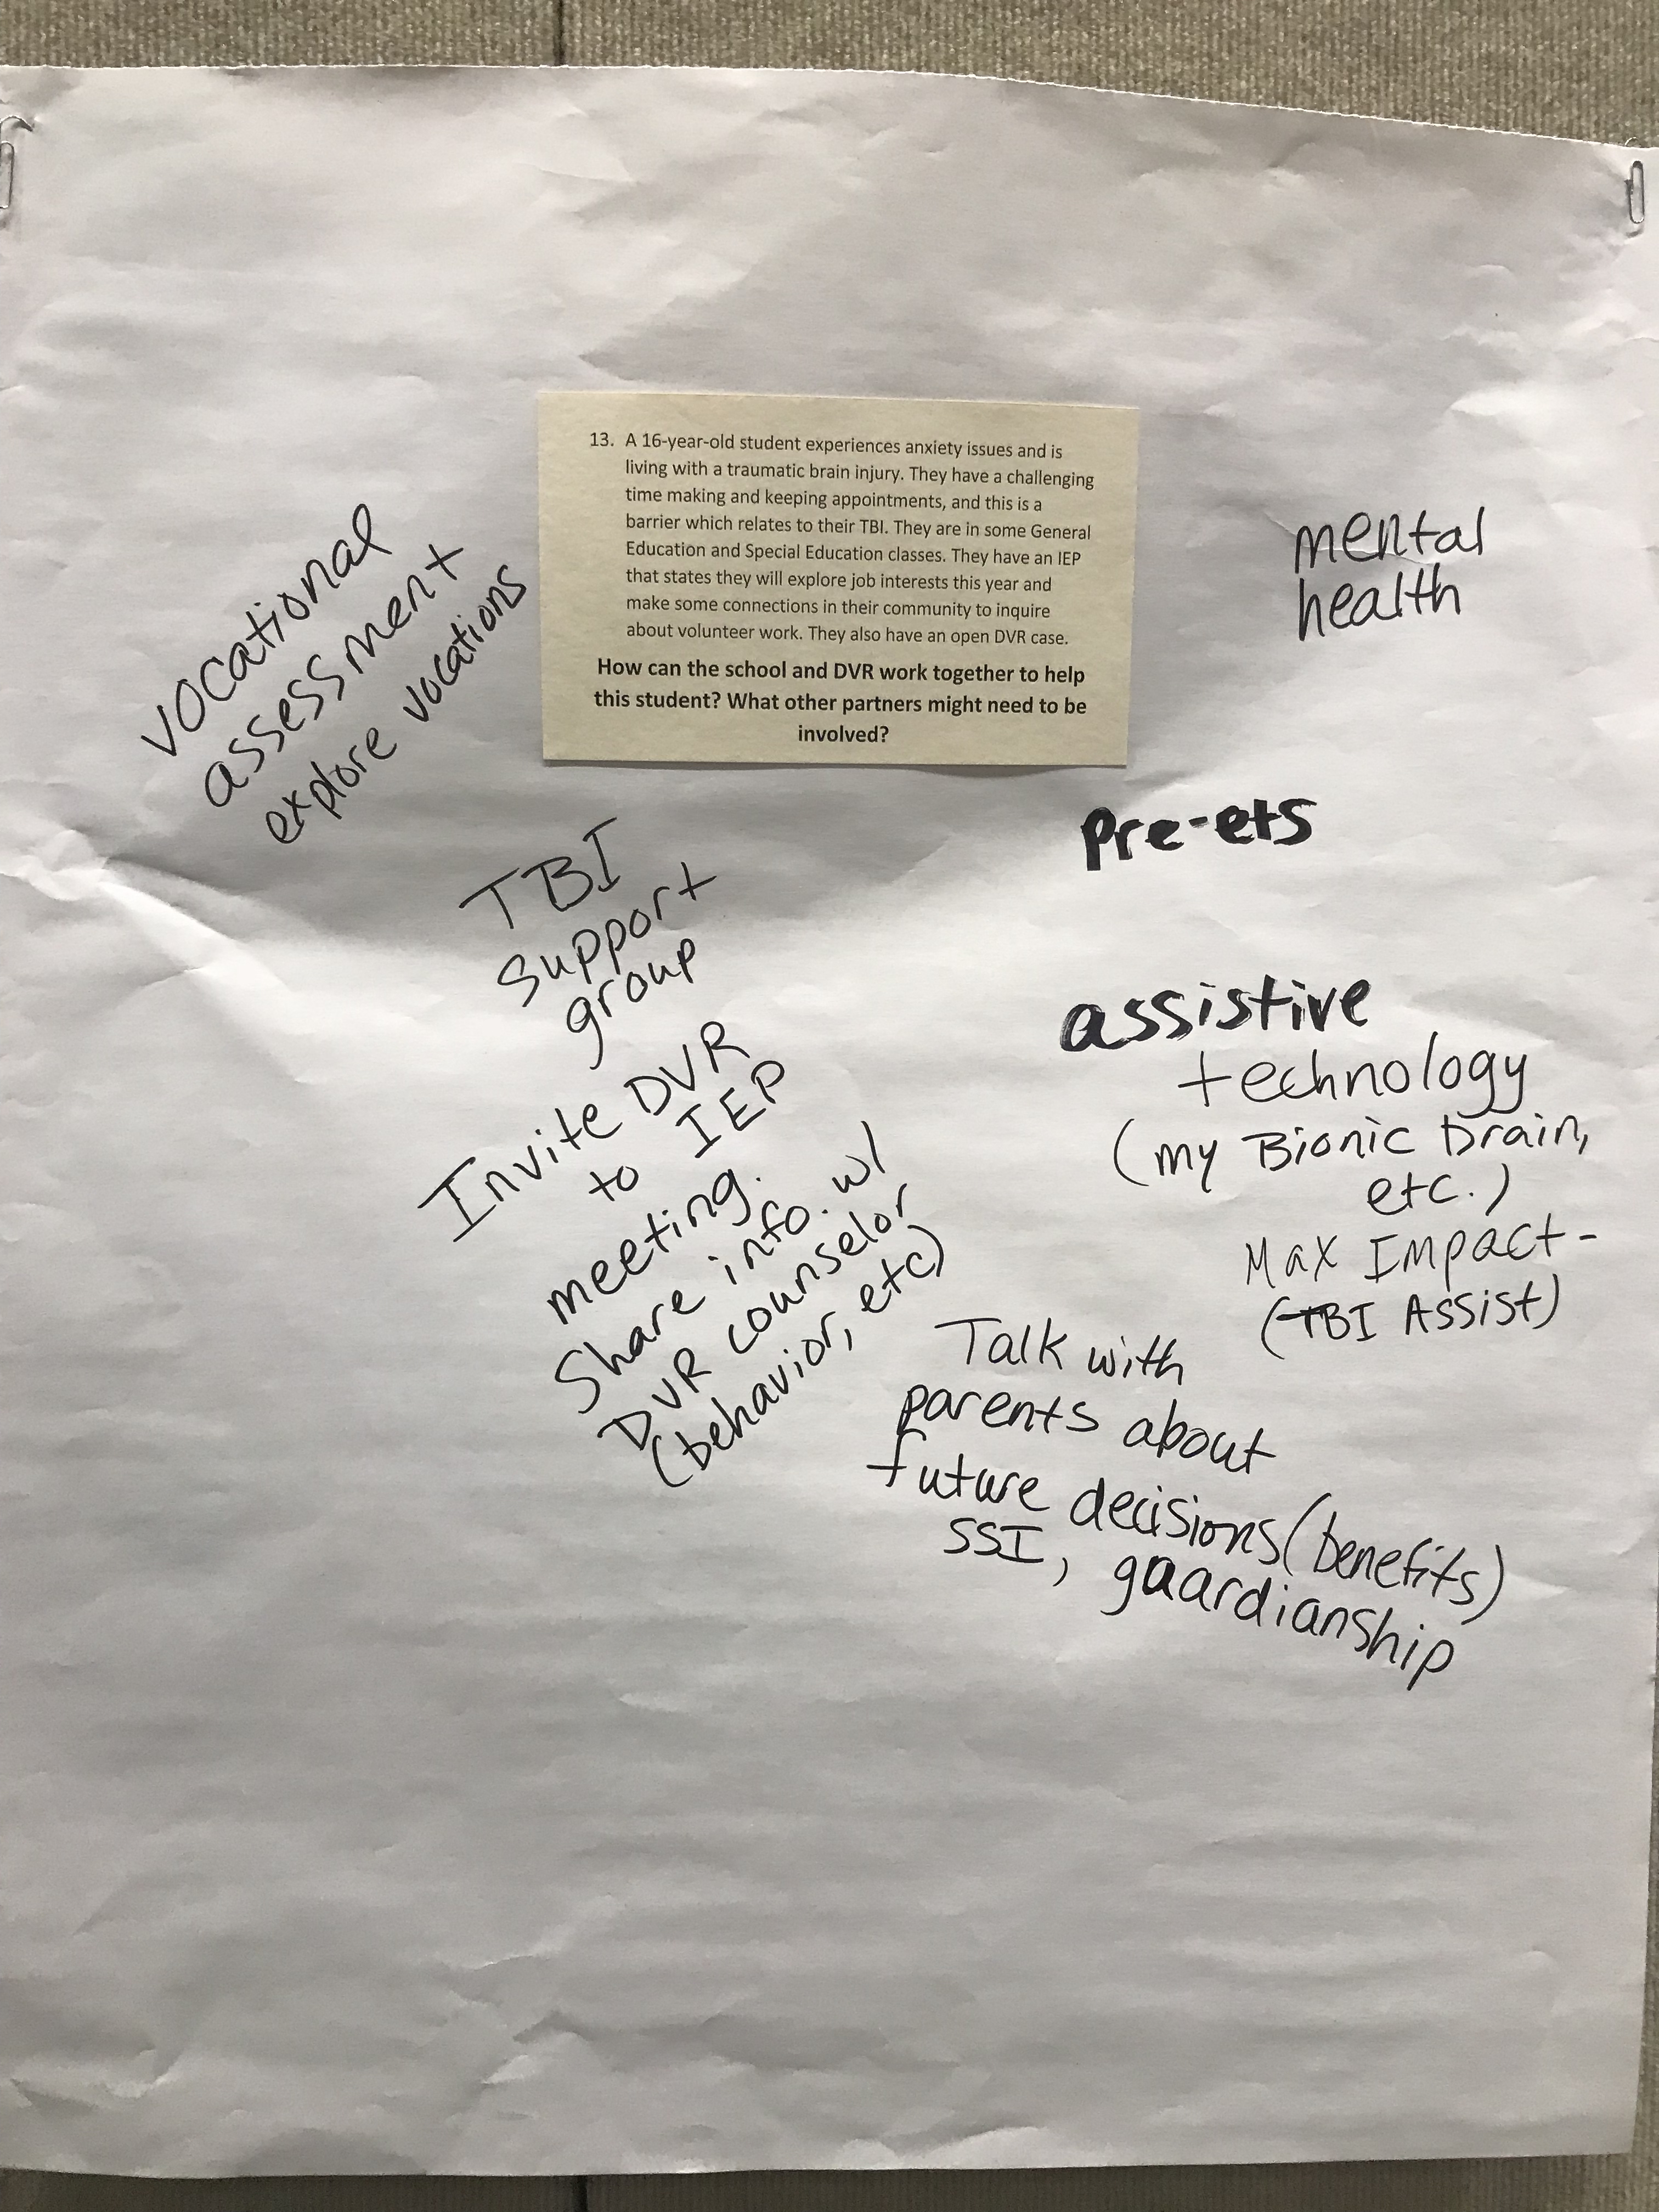 13. A 16-year-old student experiences anxiety issues and is
living with a traumatic brain injury. They have a challenging
time making and keeping appointments, and this is a
barrier which relates to their TBI. They are in some General
Education and Special Education classes. They have an IEP
that states they will explore job interests this year and
make some connections in their community to inquire
about volunteer work. They also have an open DVR case.
How can the school and DVR work together to help
this student? What other partners might need to be
involved?
vocational
assessment
explore vocations
mental
health
pre-ets
TBI
support
group
assistive
technology
(my Bionic Brain,
etc.)
Max Impact-
(TBI Assist)
Invite DVR
to IEP
meeting.
Share info. w/
DVR counselor
(behavior, etc)
Talk with
parents about
future decisions (benefits)
SSI, guardianship